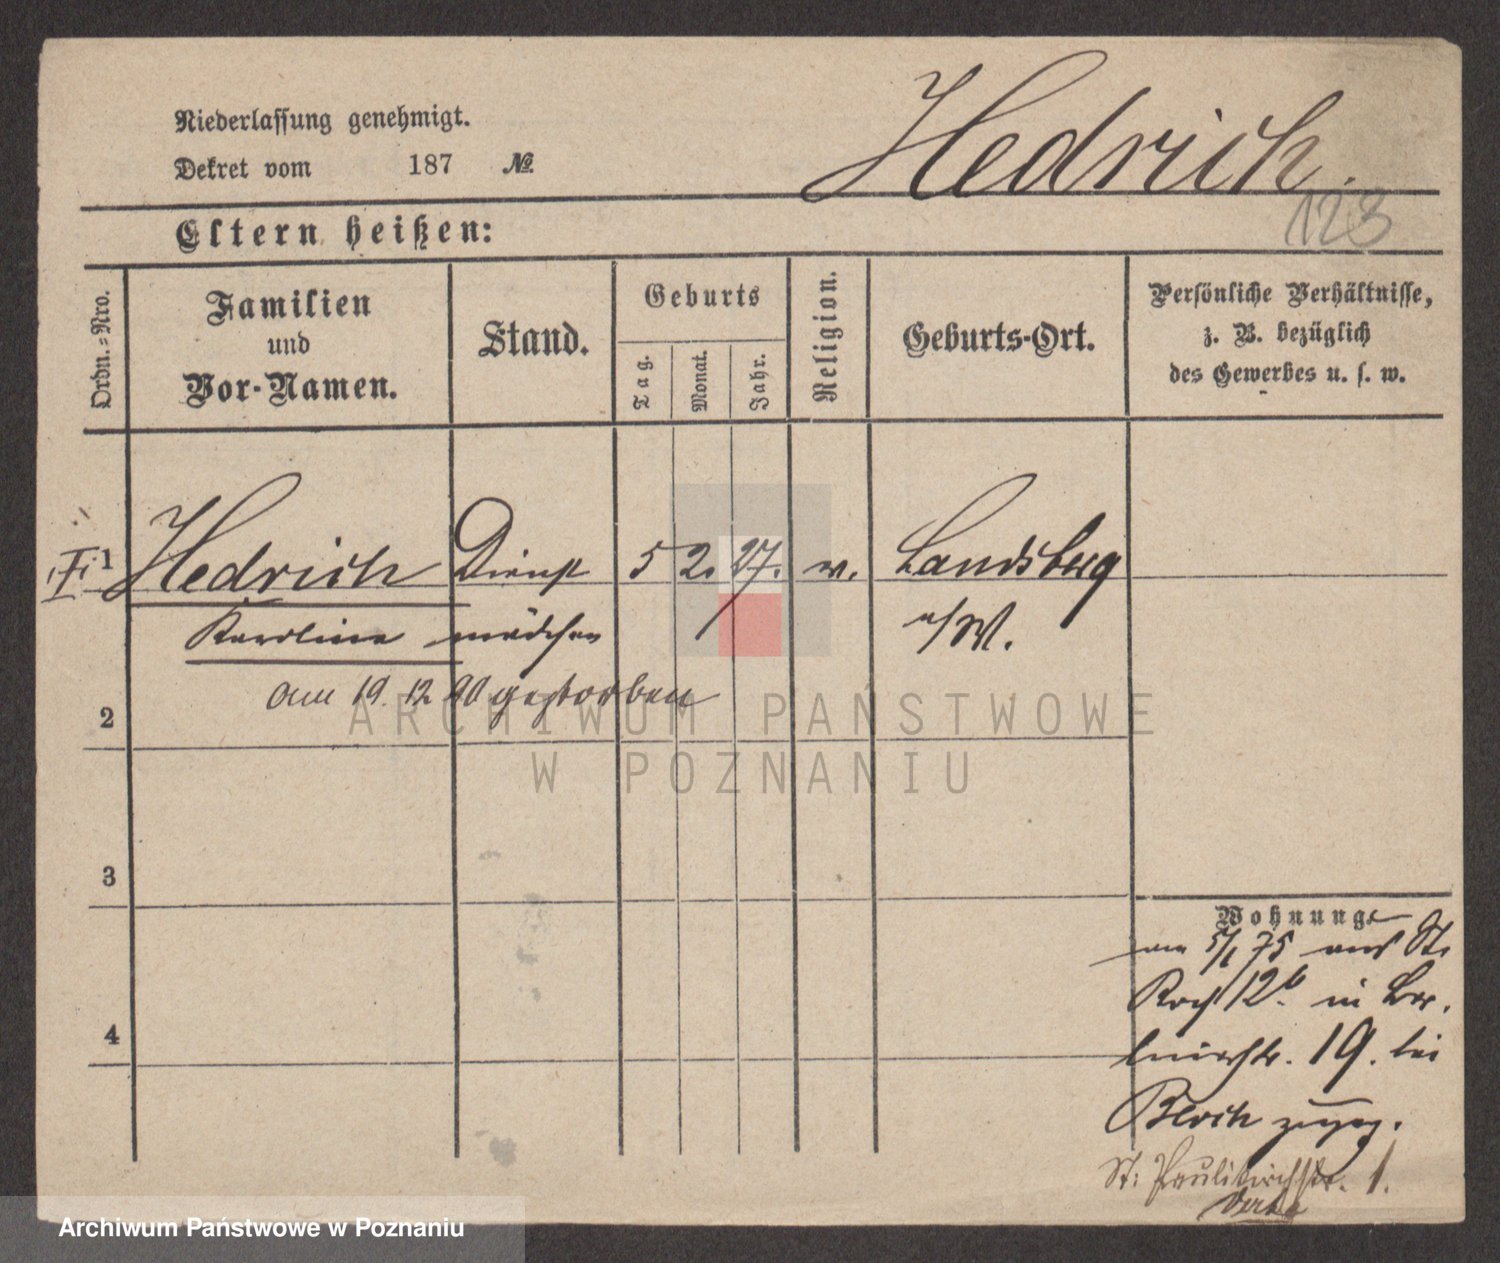 Niederlassung genehmigt.
Dekret vom 187 №
Hedrich.
123
Eltern heißen:
Ordn.=Nro.
Familien
und
Vor-Namen.
Stand.
Geburts
Tag.
Monat.
Jahr.
Religion.
Geburts-Ort.
Persönliche Verhältnisse,
z. B. bezüglich
des Gewerbes u. s. w.
I. 1 Hedrich Dienst 5 2. 27. w. Landsberg
Karoline mädchen a/W.
am 19. 12 90 gestorben
2
3
4
Wohnung.
am 5/1 75 aus St.
Roch 12b. in Ber.
linerstr. 19. bei
Bloch zugez.
St: Paulikirchstr. 1.
ARCHIWUM PAŃSTWOWE
W POZNANIU
Archiwum Państwowe w Poznaniu